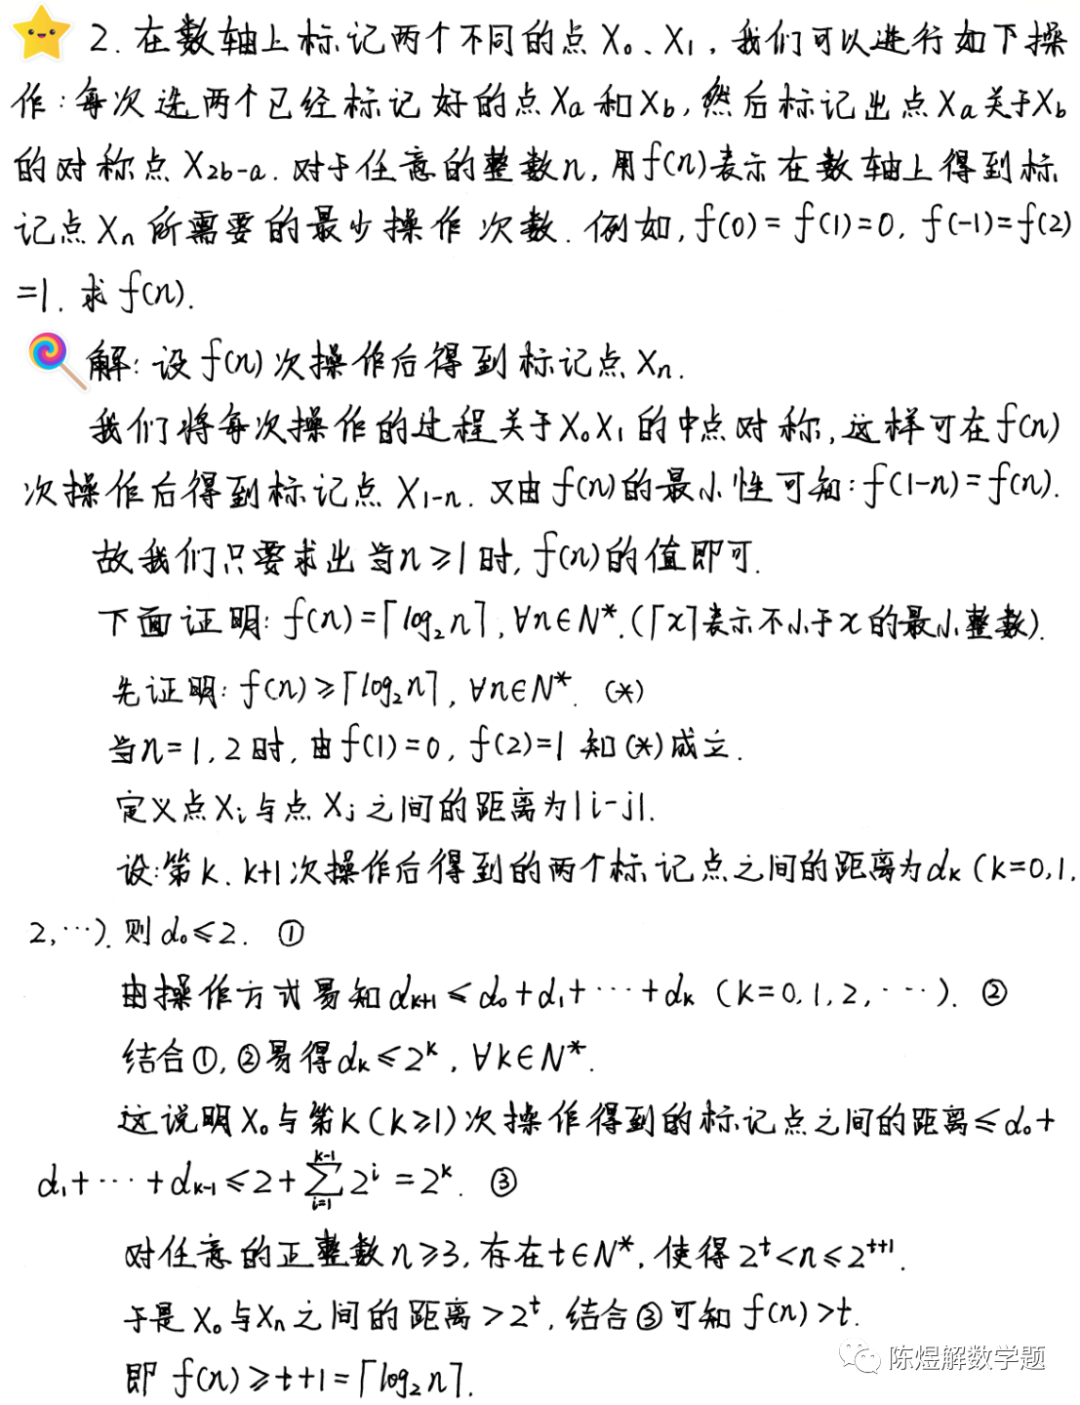 2. 在数轴上标记两个不同的点 X₀、X₁, 我们可以进行如下操
作: 每次选两个已经标记好的点 Xa 和 Xb, 然后标记出点 Xa 关于 Xb
的对称点 X2b-a. 对于任意的整数n, 用f(n)表示在数轴上得到标
记点 Xn 所需要的最少操作次数. 例如, f(0)=f(1)=0, f(-1)=f(2)
=1. 求 f(n).
解: 设 f(n) 次操作后得到标记点 Xn.
我们将每次操作的过程关于X₀X₁的中点对称, 这样可在f(n)
次操作后得到标记点 X1-n. 又由 f(n) 的最小性可知: f(1-n)=f(n).
故我们只要求出当n≥1时, f(n)的值即可.
下面证明: f(n)=⌈log₂n⌉, ∀n∈N*. (⌈x⌉表示不小于x的最小整数).
先证明: f(n)≥⌈log₂n⌉, ∀n∈N*. (*)
当n=1,2时, 由f(1)=0, f(2)=1 知(*)成立.
定义点Xi与点Xj之间的距离为|i-j|.
设: 第k、k+1次操作后得到的两个标记点之间的距离为dk (k=0,1,
2,…). 则 d₀≤2. ①
由操作方式易知 dk+1≤d₀+d₁+…+dk (k=0,1,2,…). ②
结合①,②易得dk≤2^k, ∀k∈N*.
这说明X₀与第k(k≥1)次操作得到的标记点之间的距离≤d₀+
d₁+…+dk-1≤2+∑_{i=1}^{k-1}2^i=2^k. ③
对任意的正整数n≥3, 存在t∈N*, 使得2^t<n≤2^{t+1}.
于是X₀与Xn之间的距离>2^t, 结合③可知f(n)>t.
即 f(n)≥t+1=⌈log₂n⌉.
陈煜解数学题